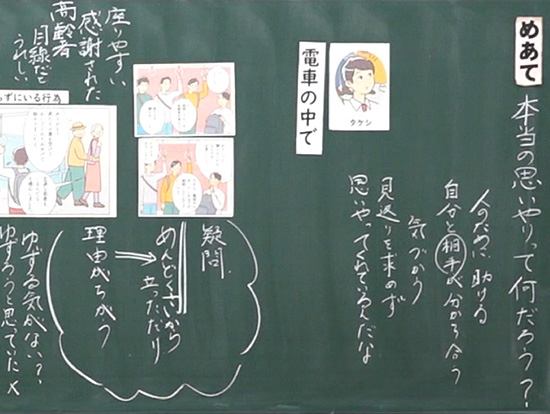 めあて
本当の思いやりって何だろう？
人のために助ける
自分と相手が分かり合う
気づかう
見返りを求めず
思いやってくれているんだな
タケシ
電車の中で
疑問
めんどくさいから
立っただけ
理由がちがう
ゆずる気がない？
ゆずろうと思っていた×
座りやすい
感謝された
高齢者
目線だと
うれしい
ずにいる行為